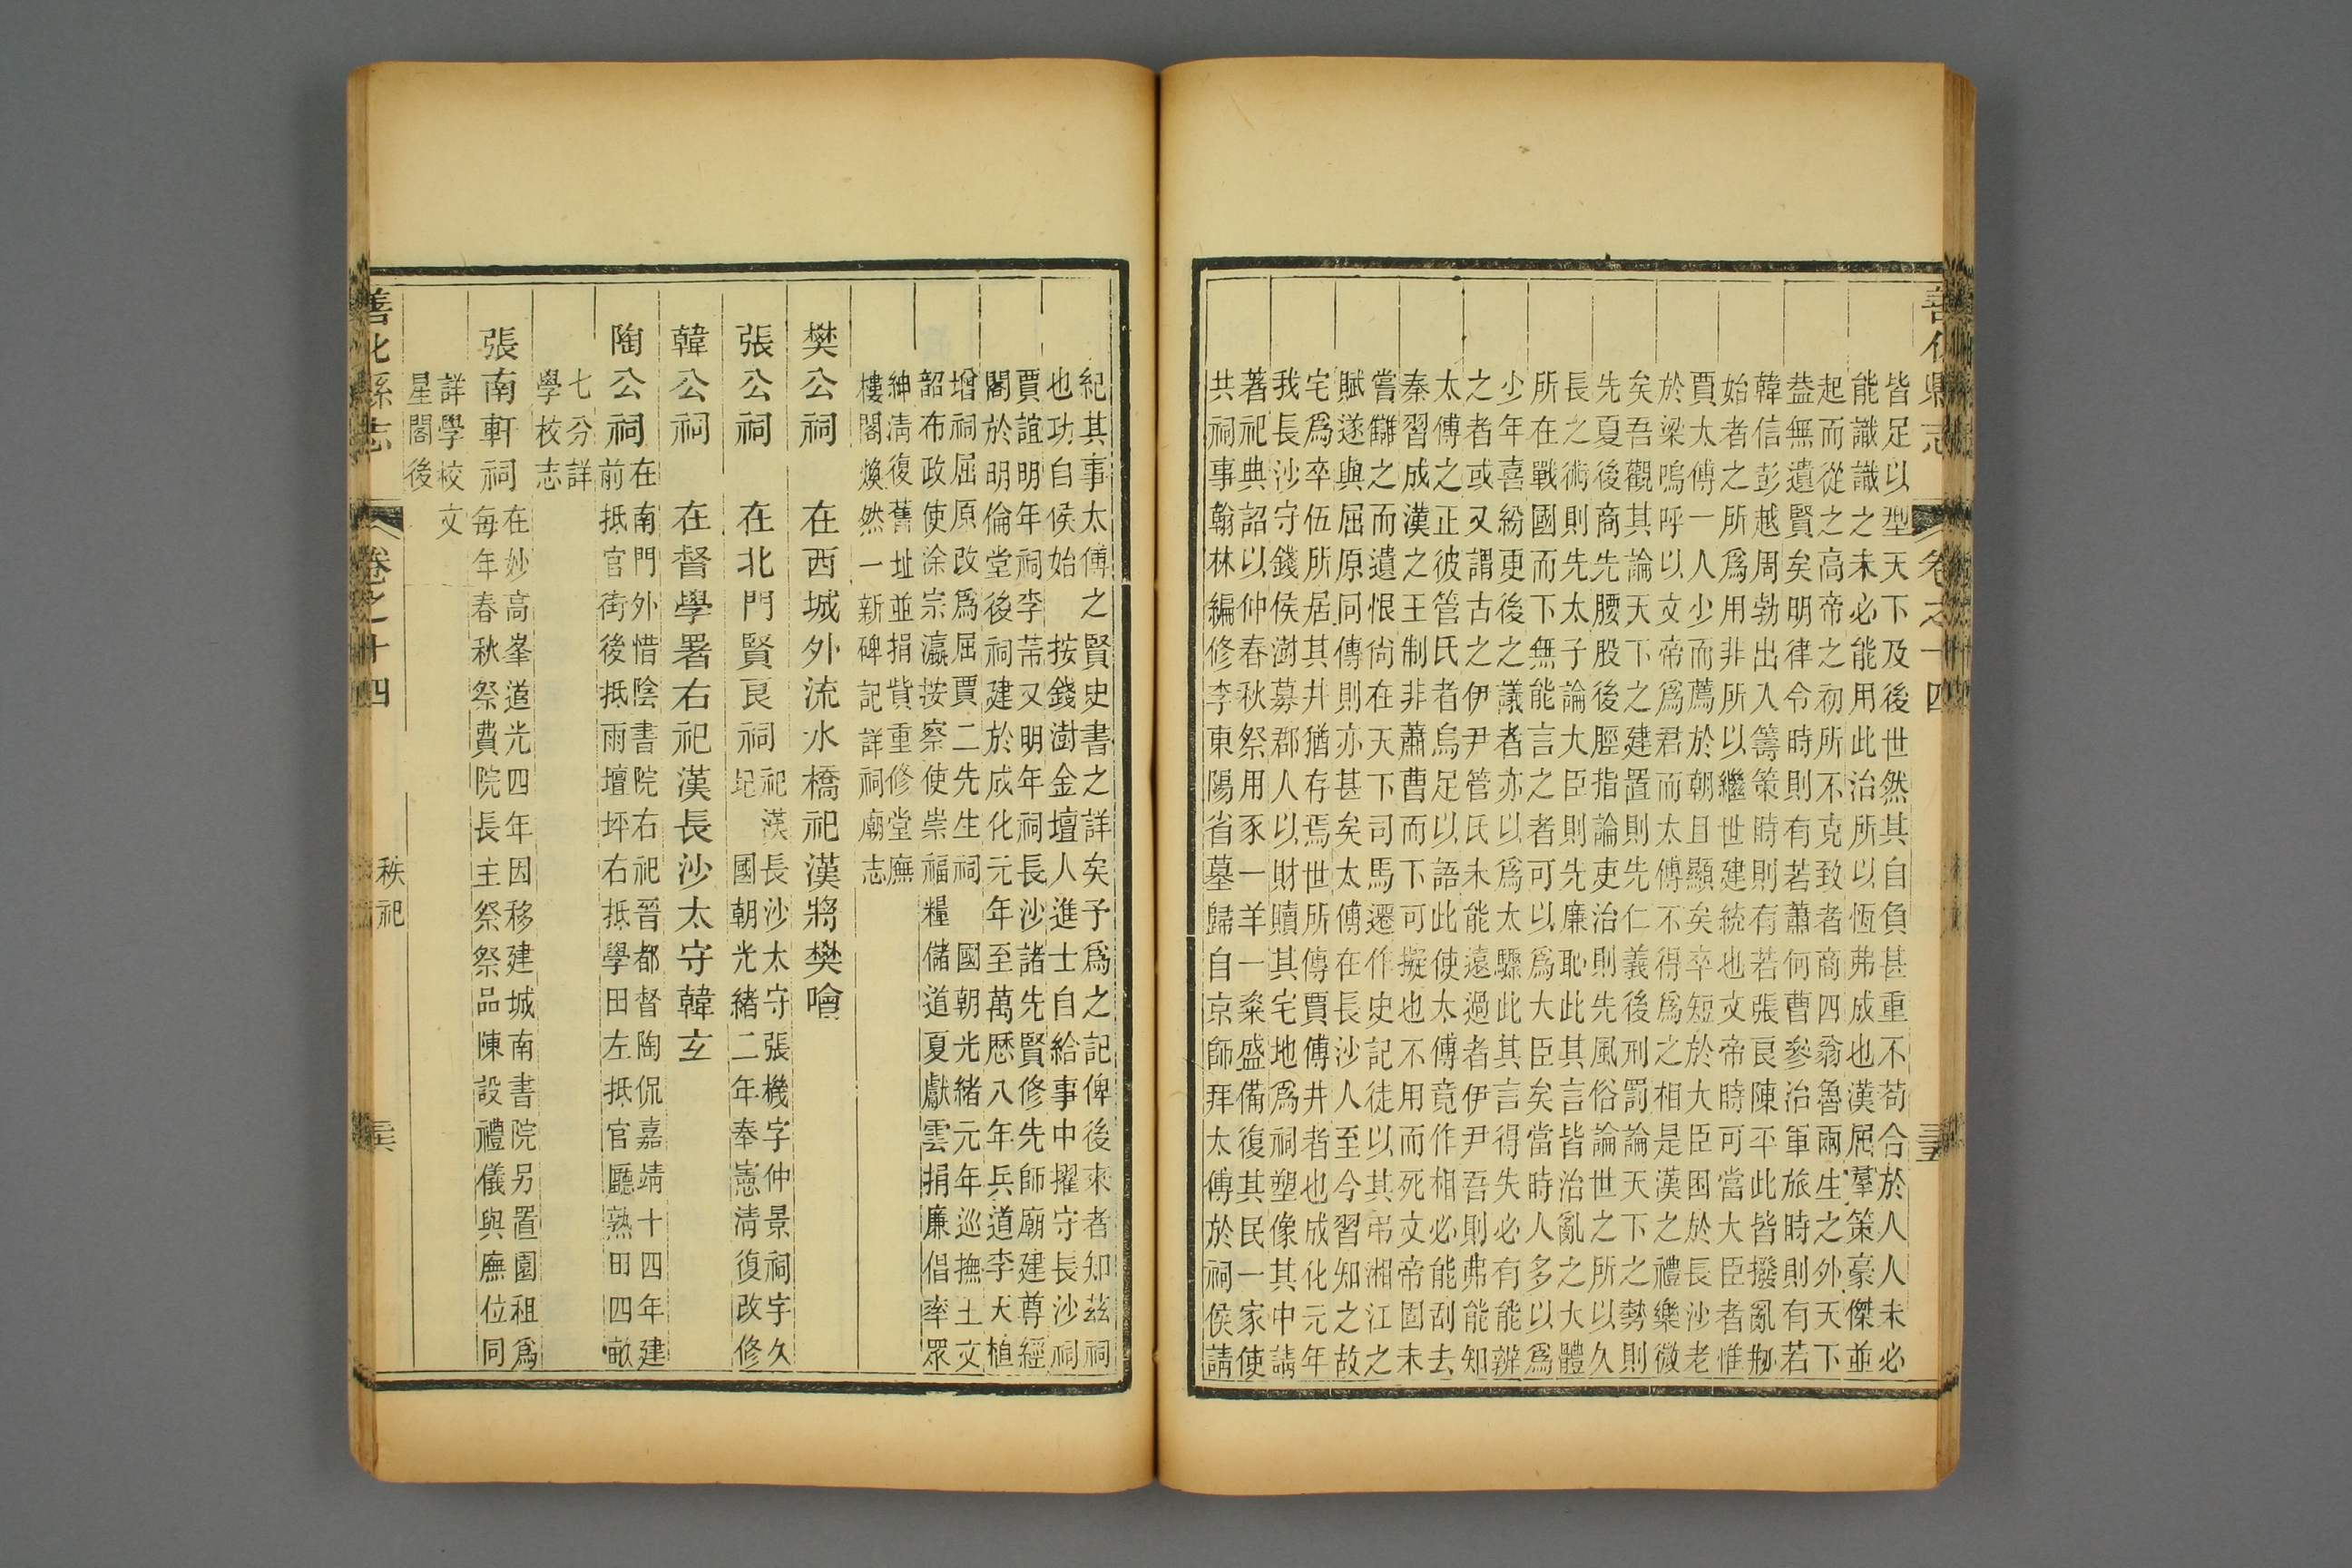 善化縣志
卷之十四
三五
皆足以型天下及後世然其自負甚重不苟合於人人未必
能識識之未必能用此治所以恆弗成也漢屈羣策豪傑並
起而從之高帝之初所不克致者商四翁魯兩生之外天下
葢無遺賢矣明律令時則有若蕭何曹參治軍旅時則有若
韓信彭越周勃出入籌策時則有若張良陳平此皆撥亂刱
始者之所爲用非所以繼世建統也文帝時可當大臣者惟
賈太傅一人少而薦於朝且顯矣卒短於大臣困於長沙老
於梁嗚呼以文帝爲君而太傅不得爲之相是漢之禮樂微
矣吾觀其論天下之建置則先仁義後刑罰論天下之勢則
先夏後商先腰股後脛指論吏治則先風俗論世之所以久
長之術則先太子論大臣則先廉恥此其言皆治亂之大體
所在戰國而下無能言之者可以爲大臣矣當時人多以爲
少年喜紛更後之議者亦以爲太驟此其言得失必有能辨
之者或又謂古之伊尹管氏未能遠過者伊尹吾則弗能知
太傅之正彼管氏者烏足以語此使太傅竟作相必能刮去
秦習成漢之王制非蕭曹而下可擬也不用而死文帝固未
嘗讎之而遺恨尚在天下司馬遷作史記徒以其弔湘江之
賦遂與屈原同傳則亦甚矣太傅在長沙人至今習知之故
宅爲卒伍所居其井猶存焉世所傳賈傅井者也成化元年
我長沙守錢侯澍募郡人以財贖其宅地爲祠塑像其中請
著祀典詔以仲春秋祭用豕一羊一粢盛備復其民一家使
共祠事翰林編修李東陽省墓歸自京師拜太傅於祠侯請
紀其事太傅之賢史書之詳矣予爲之記俾後來者知茲祠
也功自侯始 按錢澍金壇人進士自給事中擢守長沙祠
賈誼明年祠李芾又明年祠長沙諸先賢修先師廟建尊經
閣於明倫堂後祠建於成化元年至萬歷八年兵道李天植
增祠屈原改爲屈賈二先生祠 國朝光緒元年巡撫王文
韶布政使涂宗瀛按察使崇福糧儲道夏獻雲捐廉倡率眾
紳清復舊址並捐貲重修堂廡
樓閣煥然一新碑記詳祠廟志
樊公祠 在西城外流水橋祀漢將樊噲
張公祠 在北門賢良祠祀漢長沙太守張機字仲景祠宇久
圯 國朝光緒二年奉憲清復改修
韓公祠 在督學署右祀漢長沙太守韓玄
陶公祠在南門外惜陰書院右祀晉都督陶侃嘉靖十四年建
前抵官街後抵雨壇坪右抵學田左抵官廳熟田四畝
七分詳
學校志
張南軒祠在妙高峯道光四年因移建城南書院另置園租爲
每年春秋祭費院長主祭祭品陳設禮儀與廡位同
詳學校 文
星閣後
善化縣志
卷之十四
秩祀
三六